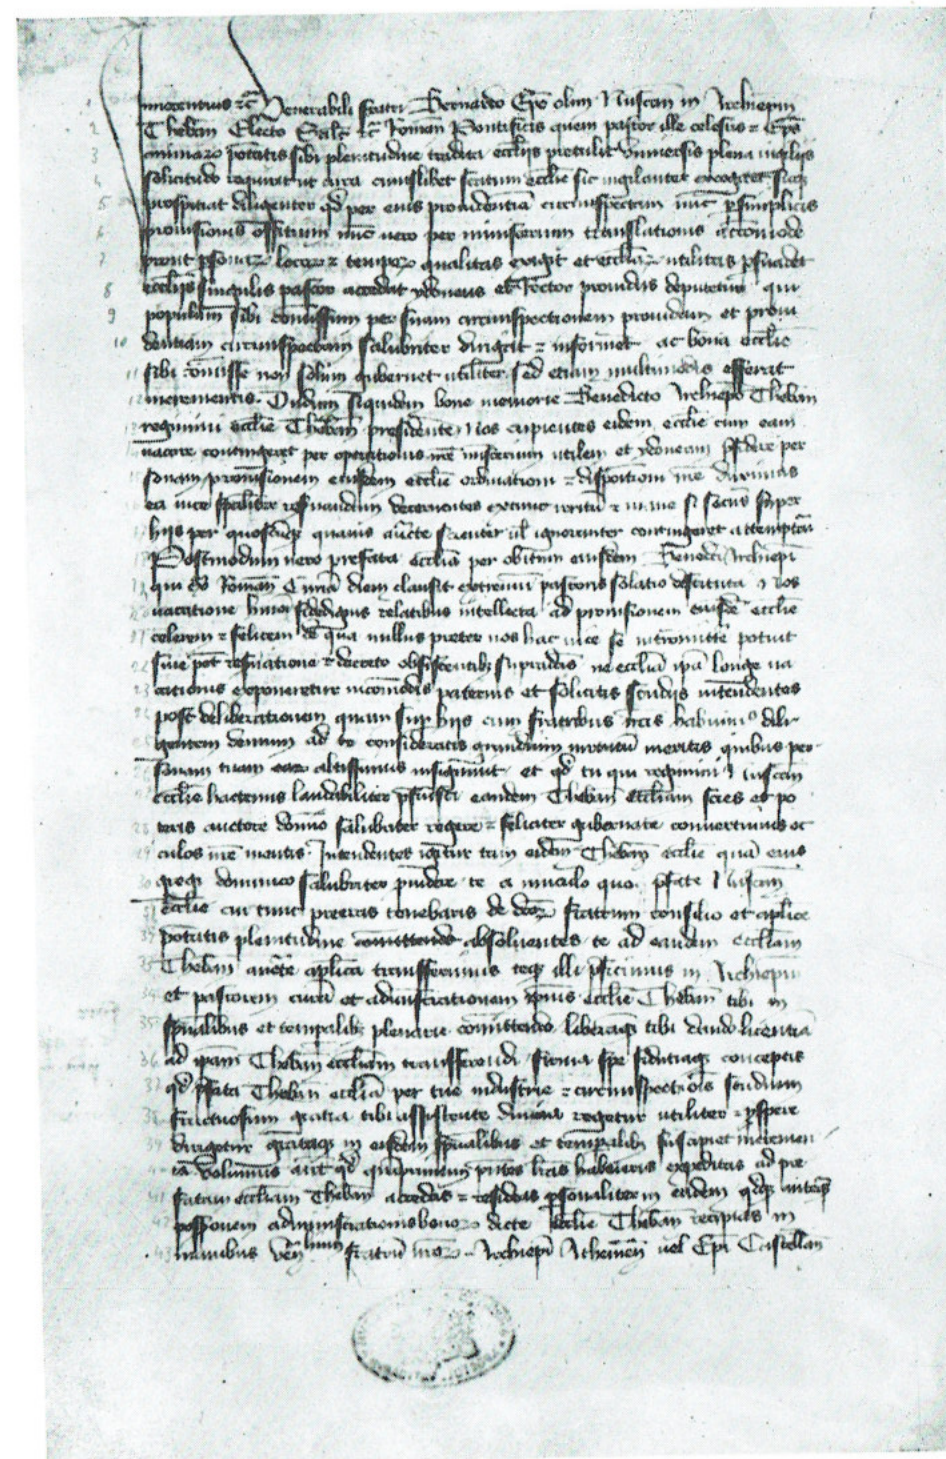 Innocentius etc̃ Venerabili fratri Bernardo Ep̃o olim Nuscan̄ in Archiep̃m
Theban̄ Electo Salt̃ etc̃ Roman̄ Pontificis quem pastor ille celestis et Ep̃s
animarꝝ potatis sibi plenitudine tradita ecc̄liis pretulit universis plena vigiliis
solicitudo requirit ut circa cuiuslibet statum ecc̄lie sic vigilanter excogitet sicqꝫ
prospiciat diligenter qd̃ per eius providentiā circumspectam nūc ꝑ simplicis
provisionis officium nūc vero per ministerium translationis accōmode
prout ꝑsonarꝝ locorꝝ et temporꝝ qualitas exigit et ecc̄liarꝝ utilitas ꝑsuadet
ecc̄liis singulis pastor accedat ydoneus et Rector providus deputetur qui
populum sibi cōmissum per suam circumspectionem providam et provi
dentiam circumspectam salubriter dirigat et informet ac bona ecc̄lie
sibi cōmisse non solum gubernet utiliter sed etiam multimodis efferat
incrementis. Dudum siquidem bone memorie Benedicto Archiep̃o Theban̄
regimini ecc̄lie Theban̄ presidente Nos cupientes eidem ecc̄lie cum eam
vacare contingeret per operationis nr̄e ministerium utilem et ydoneam p̃sidere per
sonam provisionem eiusdem ecc̄lie ordinationi et dispositioni nr̄e duximus
ea vice sp̃aliter res̃vandam decernentes extunc irritū et inane si secus super
hiis per quoscūqꝫ quavis auc̄te scienter vl̃ ignoranter contingeret attemptari
Postmodum vero prefata ecc̄lia per obitum eiusdem Benedicti Archiep̃i
qui ex̃ Roman̄ Curiā diem clausit extremum pastoris solatio destituta Nos
vacatione hm̃oi fidedignis relatibus intellecta ad provisionem eiusdē ecc̄lie
celerem et felicem de qua nullus preter nos hac vice se intromitte potuit
sive pōt res̃vatione et decreto obsistentibꝫ supradc̄is ne ecc̄lia ip̃a longe va
cationis exponeretur incōmodis paternis et solicitis studiis intendentes
post deliberationem quam sup hiis cum fratribus nr̄is habuimꝰ dili
gentem demum ad te consideratis grandium virtutū meritis quibus per
sonam tuam earꝝ altissimus insignivit et qd̃ tu qui regimini Nuscan̄
ecc̄lie hactenus laudabiliter p̃fuisti eandem Theban̄ ecc̄liam scies et po
teris auctore domino salubriter regere et feliciter gubernare convertimus oc
culos nr̄e mentis. Intendentes igitur tam eidem Theban̄ ecc̄lie quā eius
gregi dominico salubriter p̃videre te a vinculo quo p̃fate Nuscan̄
ecc̄lie cui tunc preeras tenebaris de dc̄orꝝ fratrum consilio et ap̃lice
potatis plenitudine absolventes te ad eandem ecc̄liam
Theban̄ auc̄te ap̃lica transferimus teqꝫ illi p̃ficimus in Archiep̃m
et pastorem curā et administrationem ip̃ius ecc̄lie Theban̄ tibi in
sp̃ualibus et temp̃alibꝫ plenarie cōmittendo liberāqꝫ tibi dando licentiā
ad ip̃am Theban̄ ecc̄liam transferendi firma spe fiduciaqꝫ conceptis
qd̃ p̃fata Theban̄ ecc̄lia per tue industrie et circumspectiōis studium
fructuosum gratia tibi assistente divina regetur utiliter et ꝓspere
dirigetur grātaqꝫ in eisdem sp̃ualibus et temp̃alibꝫ suscipiet incremen
ta. Volumus aut̃ qd̃ quāprimum p̃ntes lr̄as habueris expeditas ad pre
fatam ecc̄liam Theban̄ accedas et resideas ꝑsonaliter in eadem qd̃qꝫ anteqꝫ
possessionem administrationis bonorꝝ dicte Ecc̄lie Theban̄ recipias in
manibus Ven̄ilium fratrū nr̄orꝝ Archiep̃i Athenien̄ vel Ep̃i Castellan̄